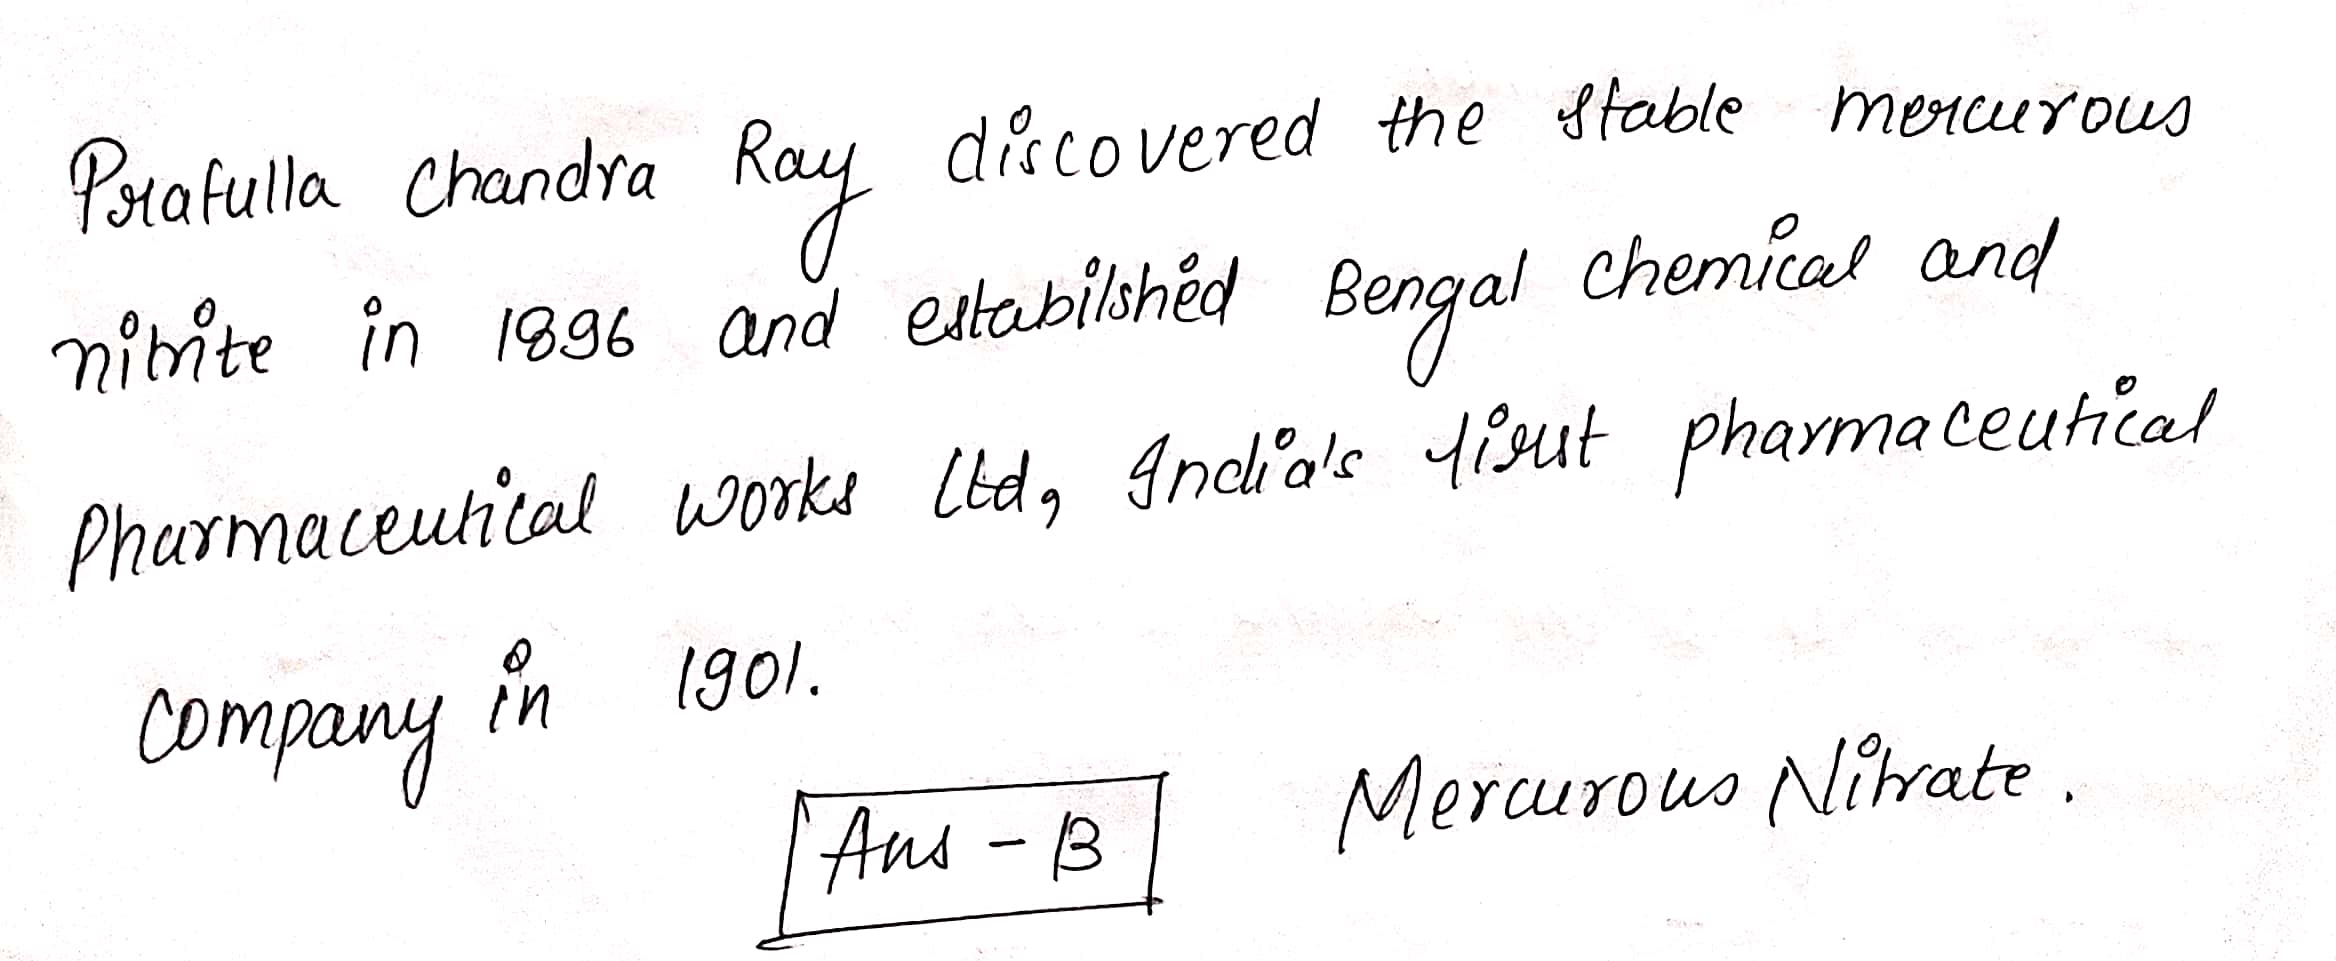 Prafulla Chandra Ray discovered the stable mercurous
nitrite in 1896 and estabilshed Bengal Chemical and
Pharmaceutical Works Ltd, India's first pharmaceutical
Company in 1901.
Ans - B Mercurous Nitrate.